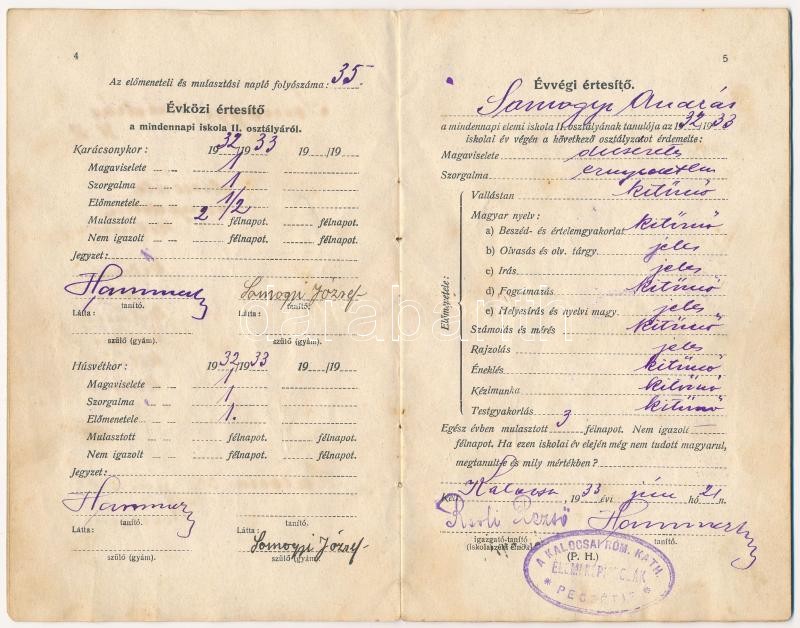 4
Az előmeneteli és mulasztási napló folyószáma: 35
Évközi értesítő
a mindennapi iskola II. osztályáról.
Karácsonykor: 1932/1933 19 /19
Magaviselete 1
Szorgalma 1
Előmenetele 1/2
Mulasztott 2 félnapot. félnapot.
Nem igazolt félnapot. félnapot.
Jegyzet:
Hammerl Somogyi József
tanító. tanító.
Látta: Látta:
szülő (gyám). szülő (gyám).
Húsvétkor: 1932/1933 19 /19
Magaviselete 1
Szorgalma 1
Előmenetele 1.
Mulasztott félnapot. félnapot.
Nem igazolt félnapot. félnapot.
Jegyzet:
tanító. tanító.
Látta: Látta:
Somogyi József
szülő (gyám). szülő (gyám).
5
Évvégi értesítő.
Somogyi András
a mindennapi elemi iskola II. osztályának tanulója az 1932/1933
iskolai év végén a következő osztályzatot érdemelte:
Magaviselete dicséretes
Szorgalma ernyedetlen
Előmenetele:
Vallástan kitünő
Magyar nyelv:
a) Beszéd- és értelemgyakorlat kitünő
b) Olvasás és olv. tárgy. jeles
c) Irás jeles
d) Fogalmazás kitünő
e) Helyesírás és nyelvi magy. jeles
Számolás és mérés kitünő
Rajzolás jeles
Éneklés kitünő
Kézimunka kitünő
Testgyakorlás kitünő
Egész évben mulasztott 3 félnapot. Nem igazolt
félnapot. Ha ezen iskolai év elején még nem tudott magyarul,
megtanult-e és mily mértékben?
Kelt Kalocsa, 1933 évi jún hó 21 n.
Rezső
igazgató-tanító tanító.
(P. H.)
A KALOCSAI RÓM. KATH.
ELEMI NÉPISKOLÁK
darabanth.com